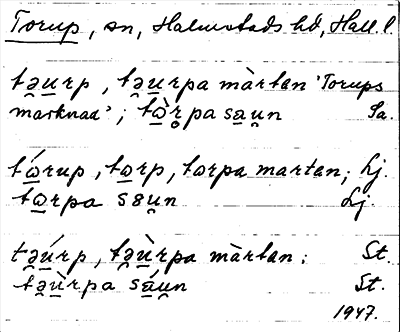 Torup, sn, Halmstads hd, Hall. l.
tə̯u̲rp, tə̯u̲rpa màrtan 'Torups
marknad'; tὼ̲r̥pa sa̲u̯n Sa.
tώ̲rup, to̲rp, torpa martan; Lj.
tω̲rpa sɐu̯n Lj.
tə̯ú̲rp, tə̯ù̲rpa màrtan; St.
tə̯ù̲rpa sá̲u̯n St.
1947.